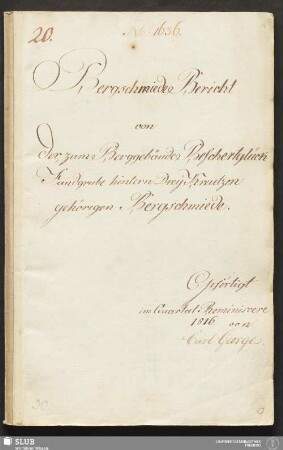 20.
No 1636.
Bergschmiede Bericht
von
der zum Berggebäude Beschertglück
Fundgrube hintern Drey Kreutzen
gehörigen Bergschmiede.
Gefertigt
im Quartal Reminiscere
1816 von
Carl
SLUB
Wir führen Wissen.
UNIVERSITÄTSBIBLIOTHEK
FREIBERG